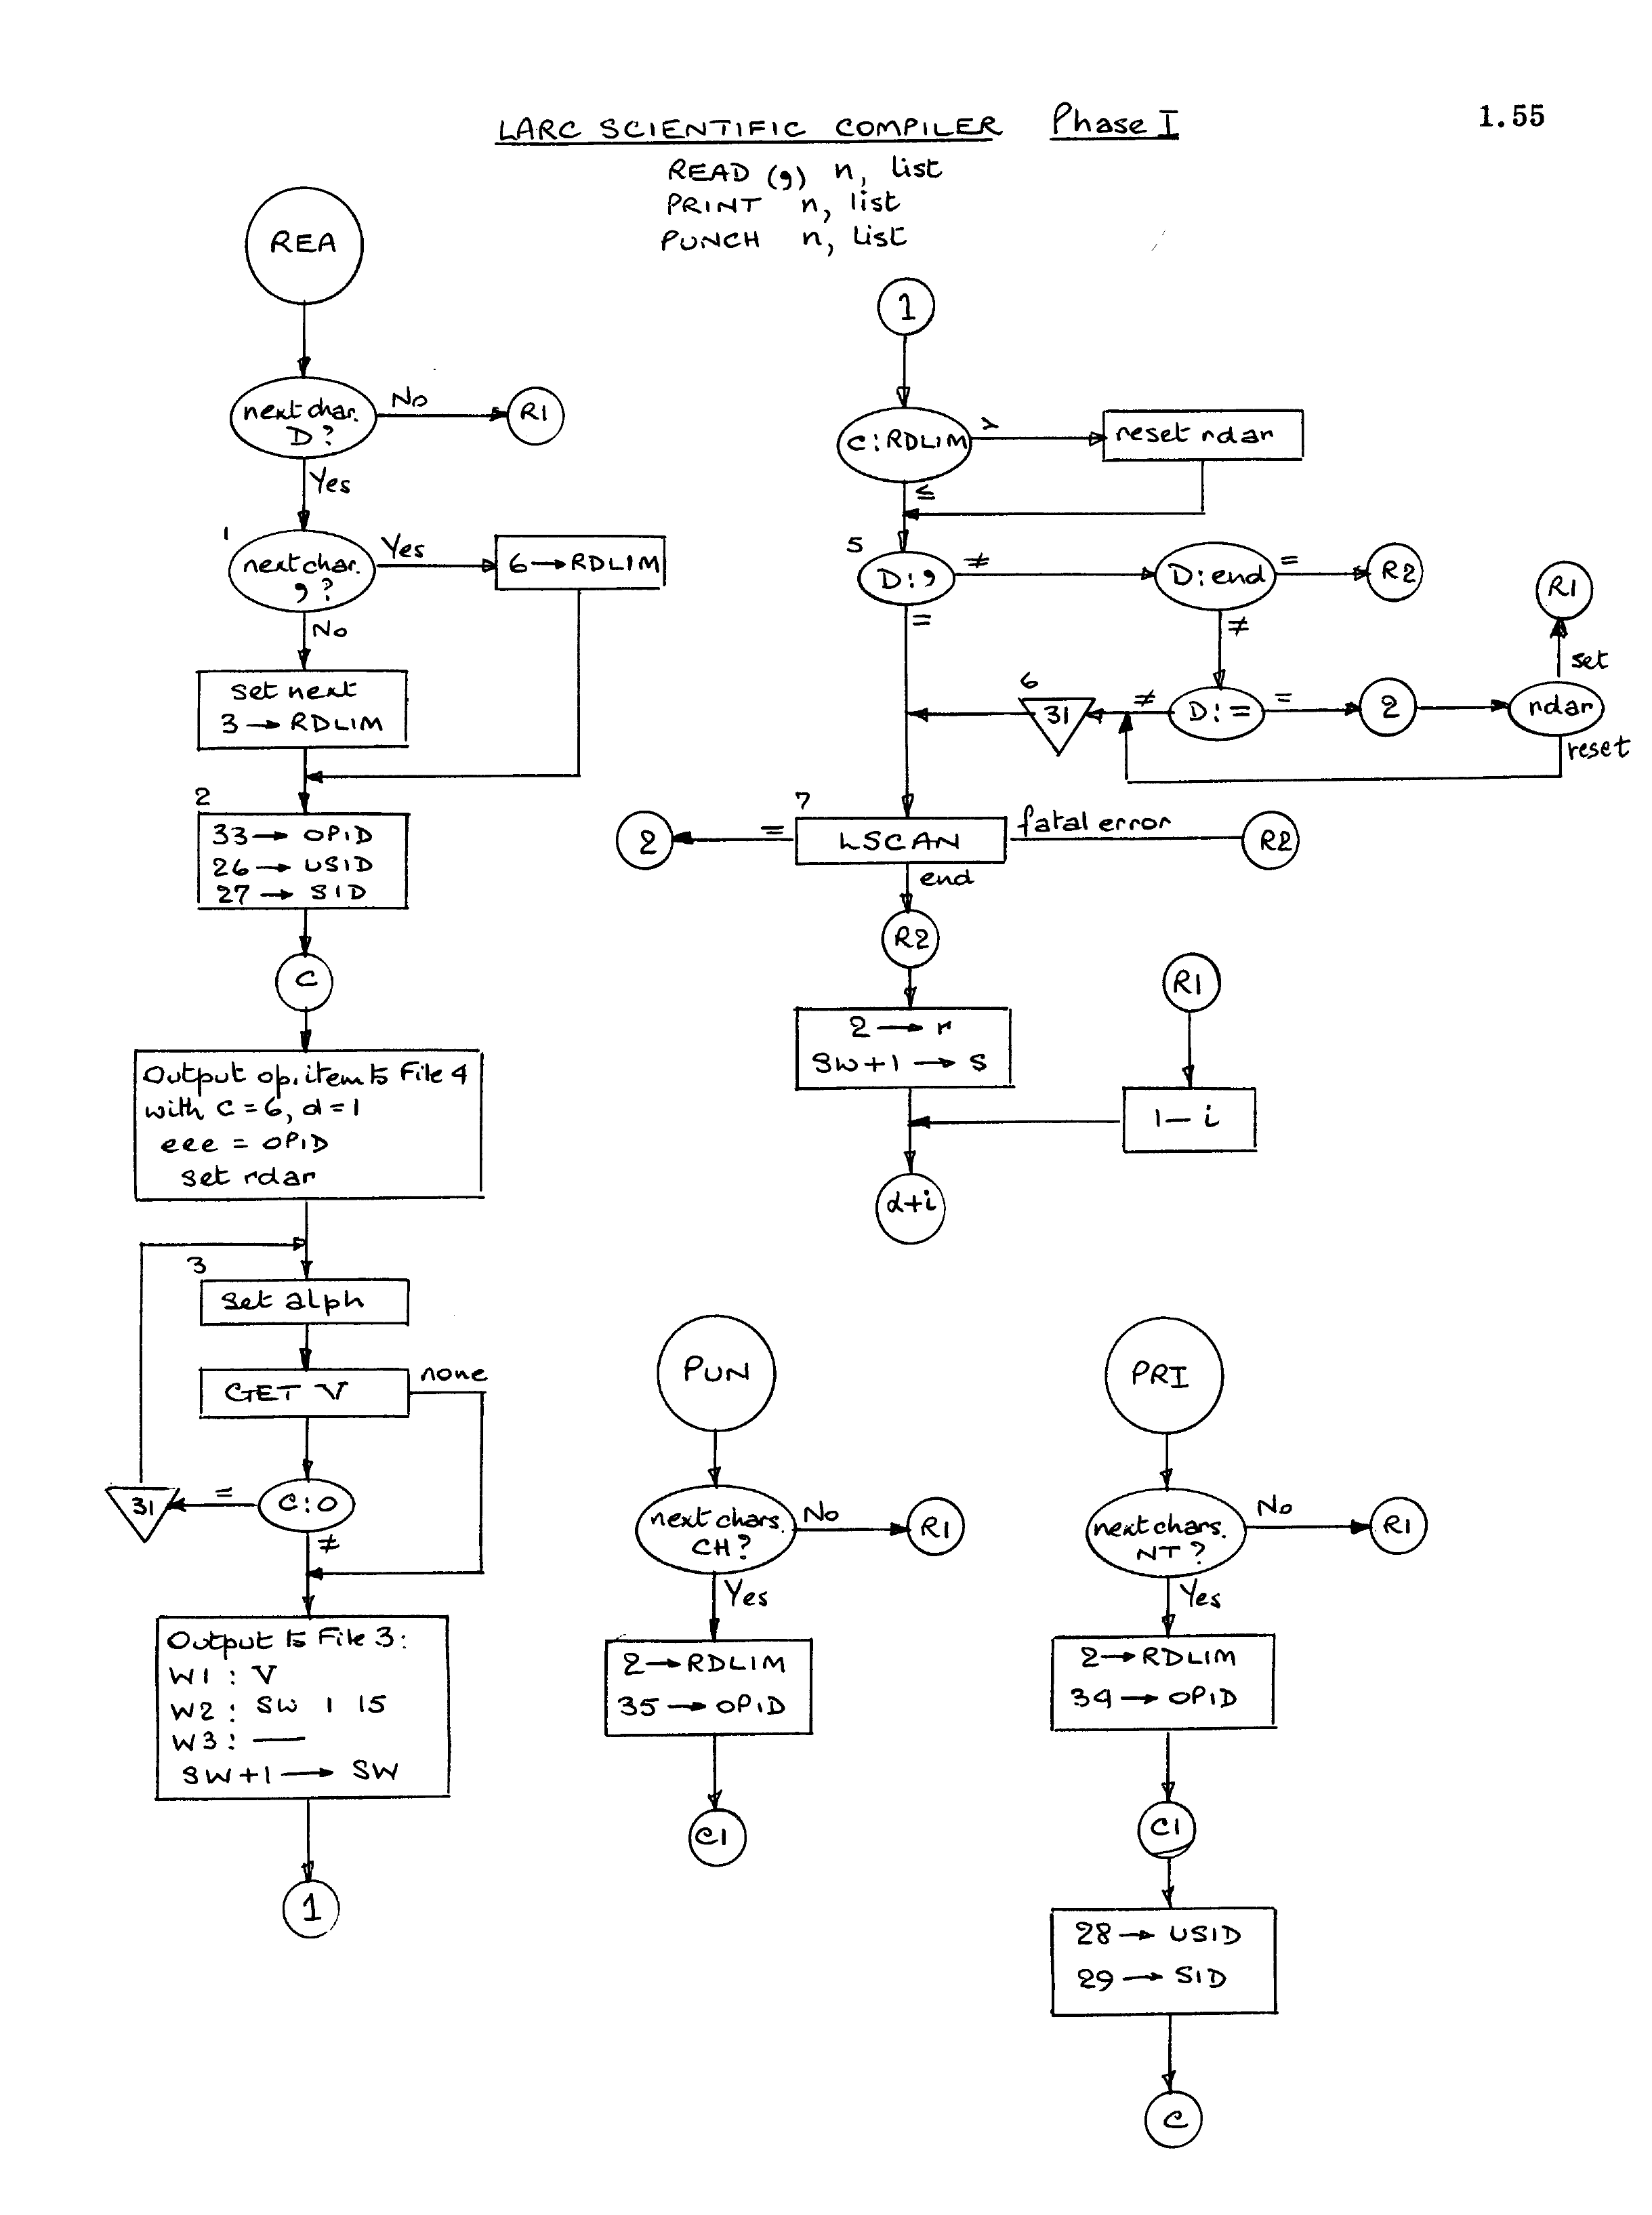 LARC SCIENTIFIC COMPILER Phase I
1.55
READ (,) n, list
PRINT n, list
PUNCH n, list
REA
next char.
D?
No
R1
Yes
1
next char.
, ?
Yes
6 → RDLIM
No
set next
3 → RDLIM
2
33 → OPID
26 → USID
27 → SID
C
Output op. item to File 4
with C = 6, d = 1
eee = OPID
set rdar
3
set alph
GET V
none
C:0
=
31
≠
Output to File 3:
W1 : V
W2 : SW 1 15
W3 : —
SW+1 → SW
1
1
C:RDLIM
>
reset rdar
≤
5
D: ,
≠
D: end
=
R2
=
≠
6
31
≠
D: =
=
2
rdar
set
R1
reset
7
LSCAN
=
2
fatal error
R2
end
R2
2 → r
SW+1 → S
R1
1 — i
α+i
PUN
next chars.
CH?
No
R1
Yes
2 → RDLIM
35 → OPID
C1
PRI
next chars.
NT?
No
R1
Yes
2 → RDLIM
34 → OPID
C1
28 → USID
29 → SID
C